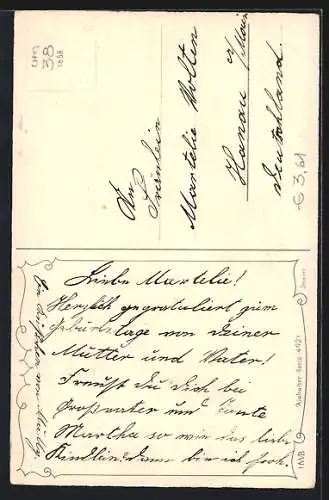 An
Fräulein
Martelie Nolten
Hanau a/Main
Deutschland.
Liebe Martelie!
Herzlich gegratuliert zum
Geburtstage von Deiner
Mutter und Vater!
Freust Du Dich bei
Großvater und Tante
Martha so wie das liebe
Kindlein? Dann bin ich froh.
Alabaster-Serie 4921
IMB
DM
38
1658